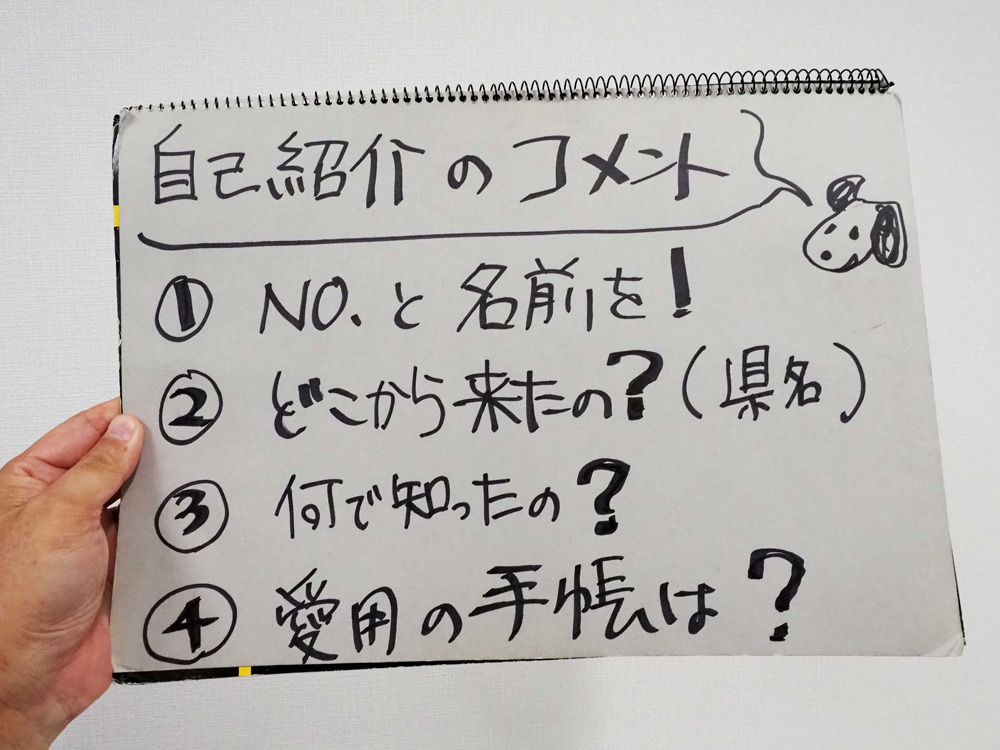 自己紹介のコメント
① NO.と名前を!
② どこから来たの?(県名)
③ 何で知ったの?
④ 愛用の手帳は?